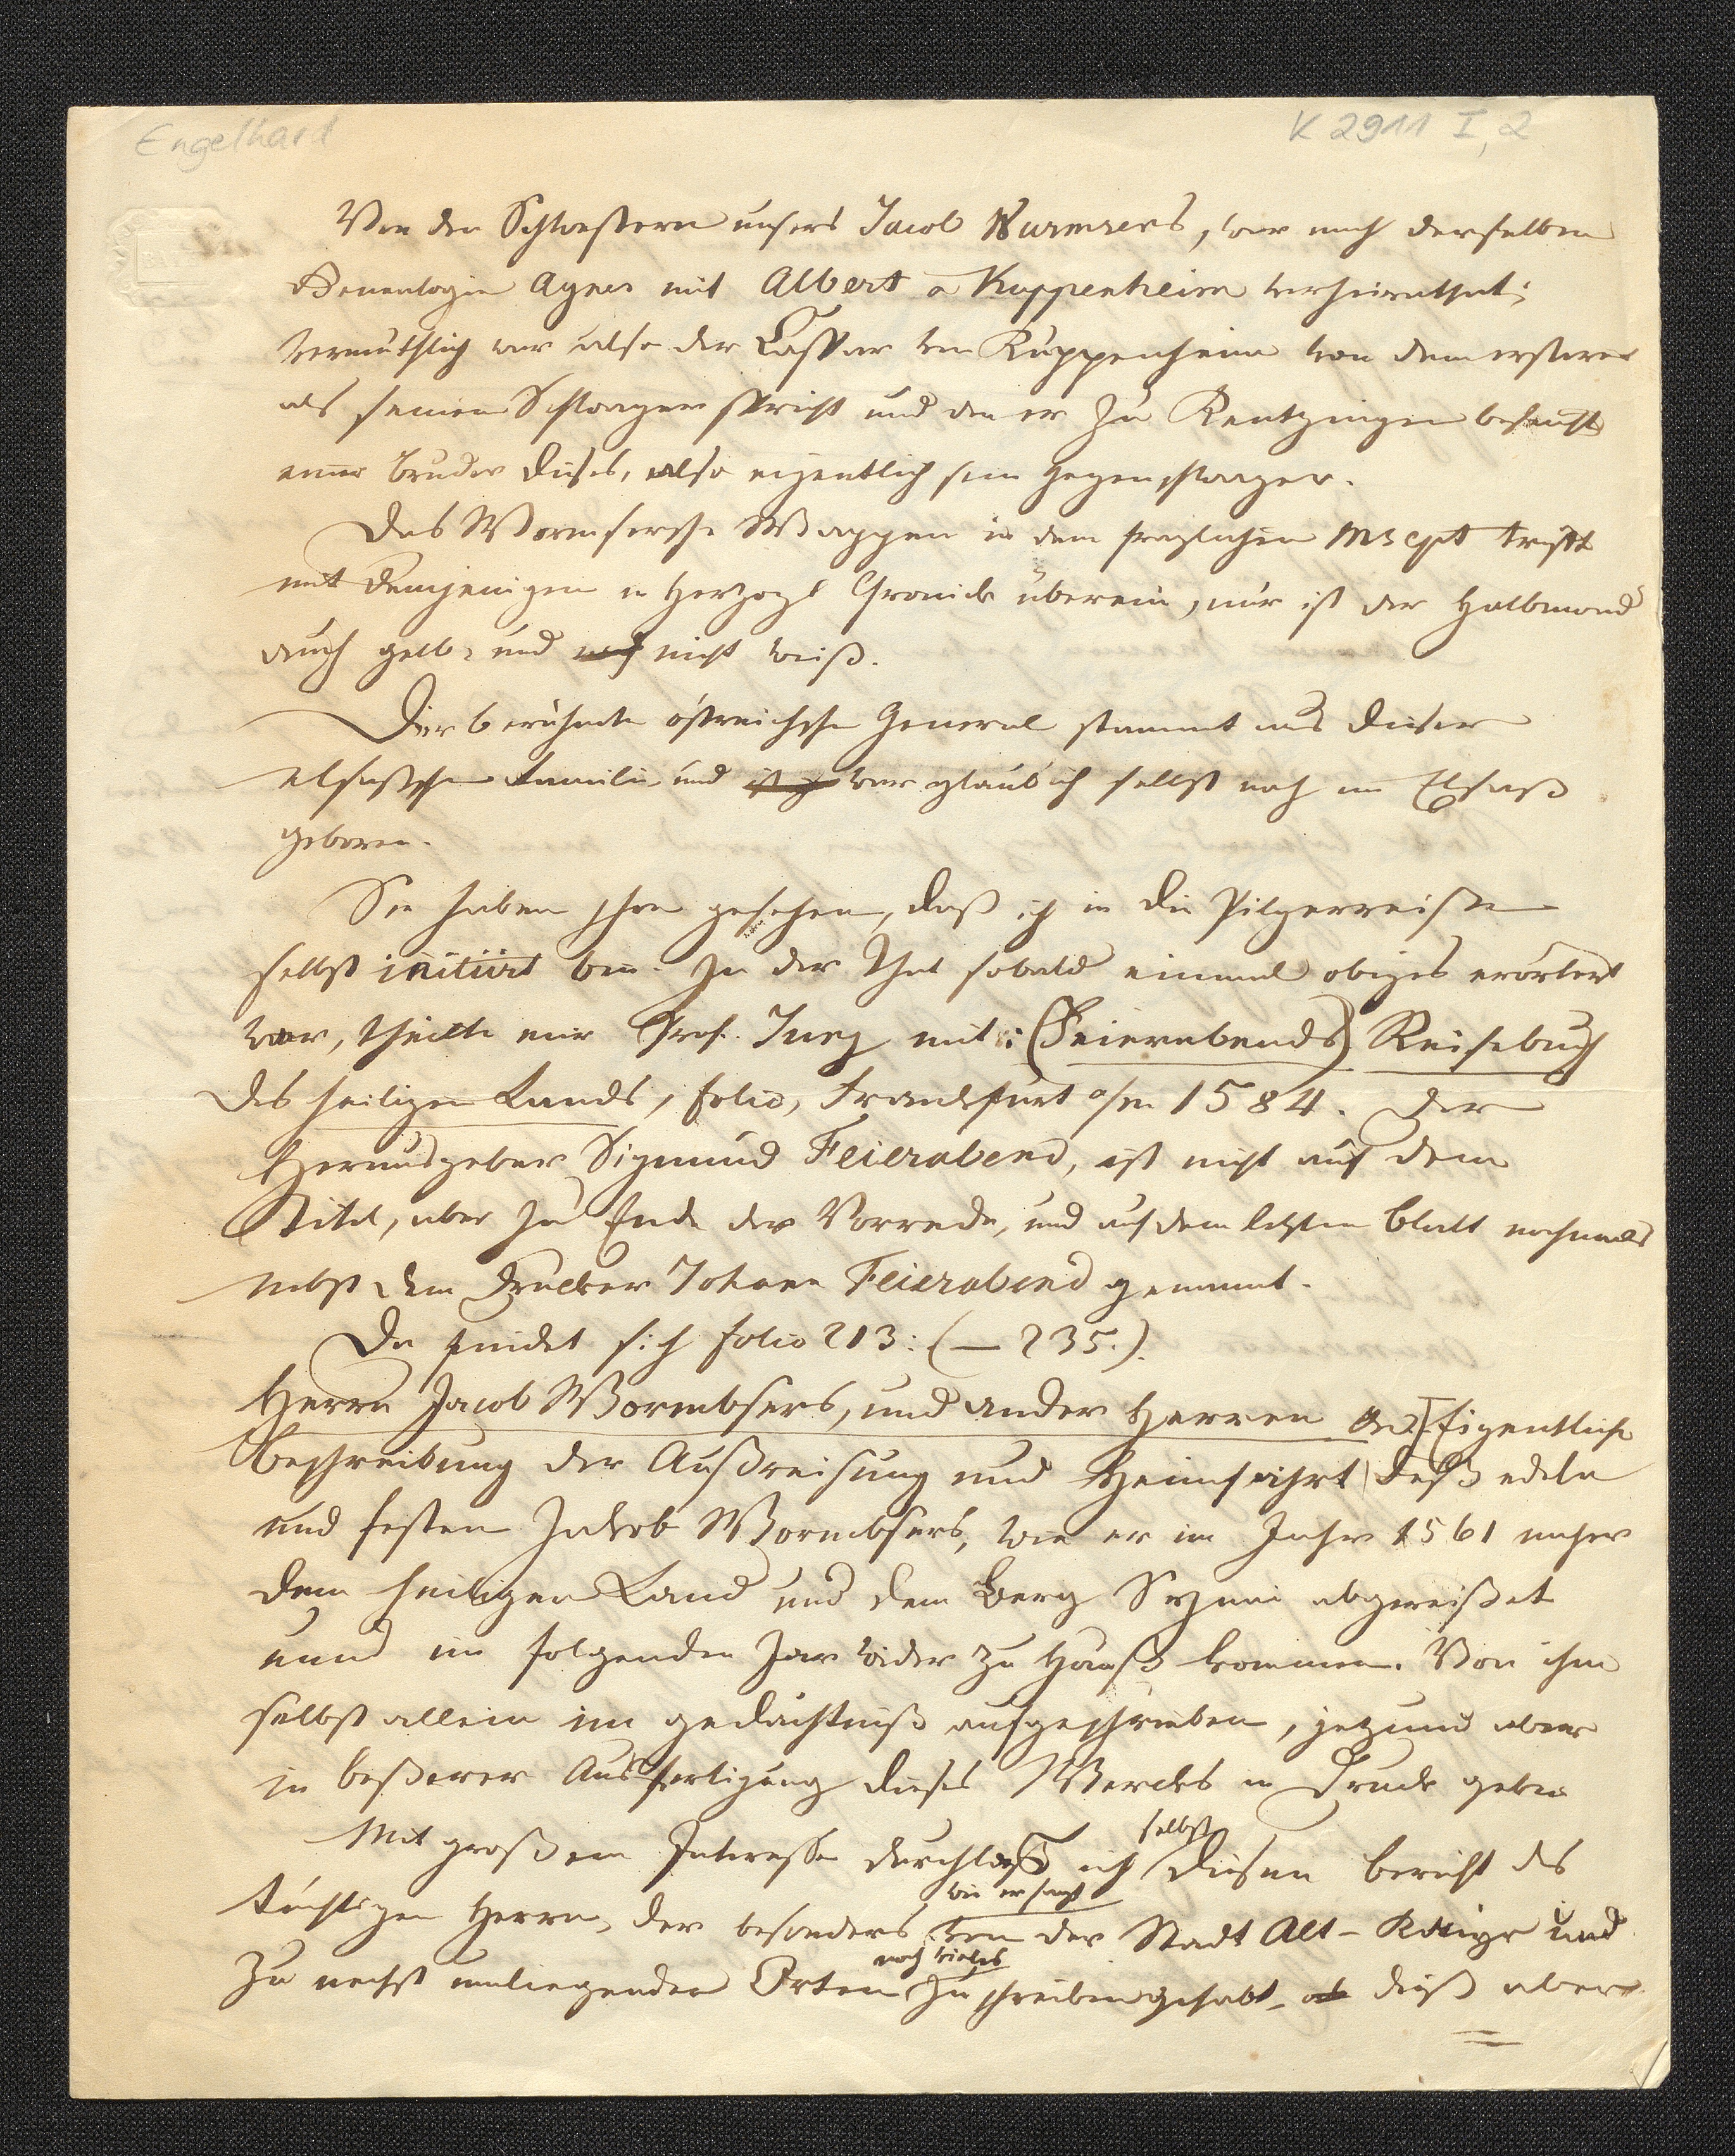 Engelhard
K 2911 I, 2
Von den Schwestern unsers Jacob Wurmsers, war nach derselben
Genealogie Agnes mit Albert a Kuppenheim verheirathet;
vermuthlich war also der Caspar von Kuppenheim von dem ersterer
als seinem Schwager spricht und den er zu Kentzingen besucht
einer Bruder dieses, also eigentlich sein Gegenschwager.
Das Wormsersche Wappen in dem fraglichen Mscpt trifft
mit demjenigen in Herzogs Cronick überein, nur ist der Halbmond
auch gelb, und nicht weiß.
Der berühmte östreichsche General stammt aus dieser
elsaßschen Familie und war glaub ich selbst noch im Elsaß
geboren.
Sie haben schon gesehen, daß ich in die Pilgerreisen
selbst initiirt bin. In der That sobald einmal obiges erörtert
war, theilte mir Prof. Jung mit: (Feierabends) Reisebuch
des heiligen Lands, folio, Frankfurt a/m 1584. Der
Herausgeber Sigmund Feierabend, ist nicht auf dem
Titel, aber zu Ende der Vorrede, und auf dem letzten Blatt nochmals
nebst dem Drucker Johann Feierabend genannt.
Da findet sich folio 213: (— 235.).
Herrn Jacob Wormbsers, und ander Herren Eigentliche
Beschreibung der Außreisung und Heimfahrt deß edeln
und festen Jakob Wormbsers, wie er im Jahr 1561 naher
dem heiligen Land und dem Berg Synai abgereißet
unnd im folgenden Jar wider zu Hauß kommen. Von ihm
selbst allein im gedächtniß aufgeschrieben, jetzund aber
in beßerer Ausfertigung dieses Wercks in Druck geben
Mit großem Interesse durchlas ich selbst diesen Bericht des
tüchtigen Herrn, der besonders, wie er sagt von der Stadt Alt-Kaiyr und
zu nechst umliegenden Orten noch vieles zu schreiben gehabt, diß aber